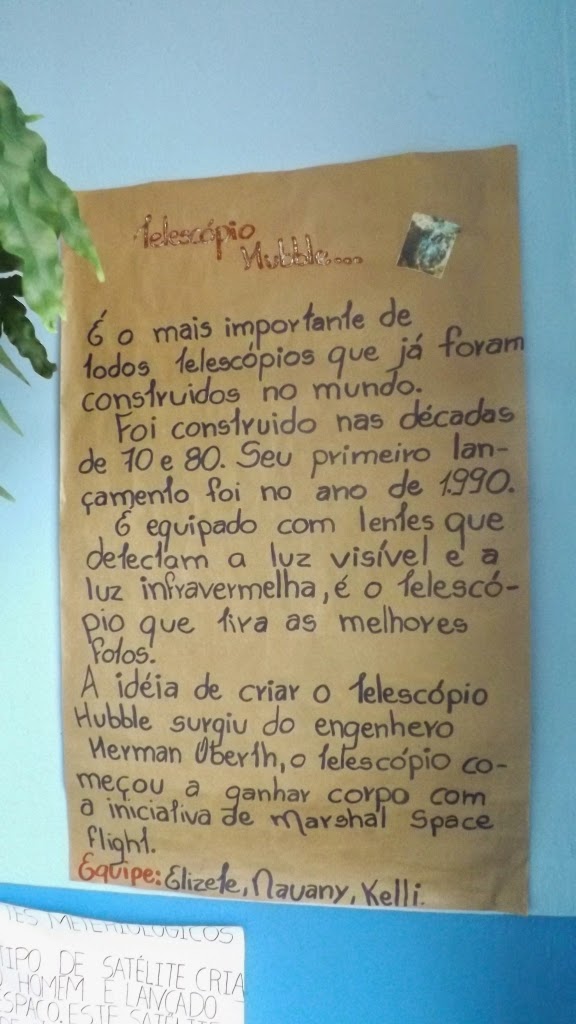 Telescópio
Hubble...
É o mais importante de
todos telescópios que já foram
construidos no mundo.
Foi construido nas décadas
de 70 e 80. Seu primeiro lan-
çamento foi no ano de 1.990.
É equipado com lentes que
detectam a luz visível e a
luz infravermelha, é o telescó-
pio que tira as melhores
fotos.
A idéia de criar o telescópio
Hubble surgiu do engenhero
Herman Oberth, o telescópio co-
meçou a ganhar corpo com
a iniciativa de Marshal Space
flight.
Equipe: Elizete, Nauany, Kelli.
TES METEREOLÓGICOS
TIPO DE SATÉLITE CRIA
O HOMEM E LANÇADO
ESPAÇO. ESTE SATÉLITE